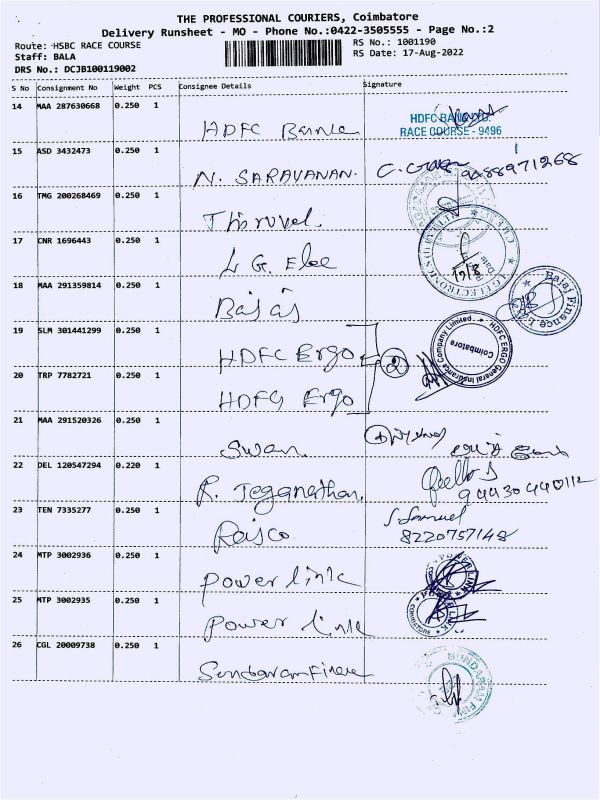 THE PROFESSIONAL COURIERS, Coimbatore
Delivery Runsheet - MO - Phone No.:0422-3505555 - Page No.:2
Route: HSBC RACE COURSE
RS No.: 1001190
Staff: BALA
RS Date: 17-Aug-2022
DRS No.: DCJB100119002
S No Consignment No Weight PCS Consignee Details Signature
14 MAA 287630668 0.250 1
HDFC BANK
HDFC Bank
RACE COURSE - 9496
15 ASD 3432473 0.250 1
N. SARAVANAN. 9488971268
16 TMG 200268469 0.250 1
Thiruvel.
17 CNR 1696443 0.250 1
L G. Elec
LG ELECTRONICS
17/8
18 MAA 291359814 0.250 1
Bajaj
Bajaj Finance L
19 SLM 301441299 0.250 1
HDFC Ergo
2
HDFC ERGO General Insurance Company Limited
Coimbatore
20 TRP 7782721 0.250 1
HDFC Ergo
21 MAA 291520326 0.250 1
Swan.
22 DEL 120547294 0.220 1
R. Jeganathan.
23 TEN 7335277 0.250 1
Raisco
S Samuel
8220757148
24 MTP 3002936 0.250 1
power link
POWER LINK
25 MTP 3002935 0.250 1
power link
POWER LINK
26 CGL 20009738 0.250 1
Sundaram Finance
SUNDARAM FIN